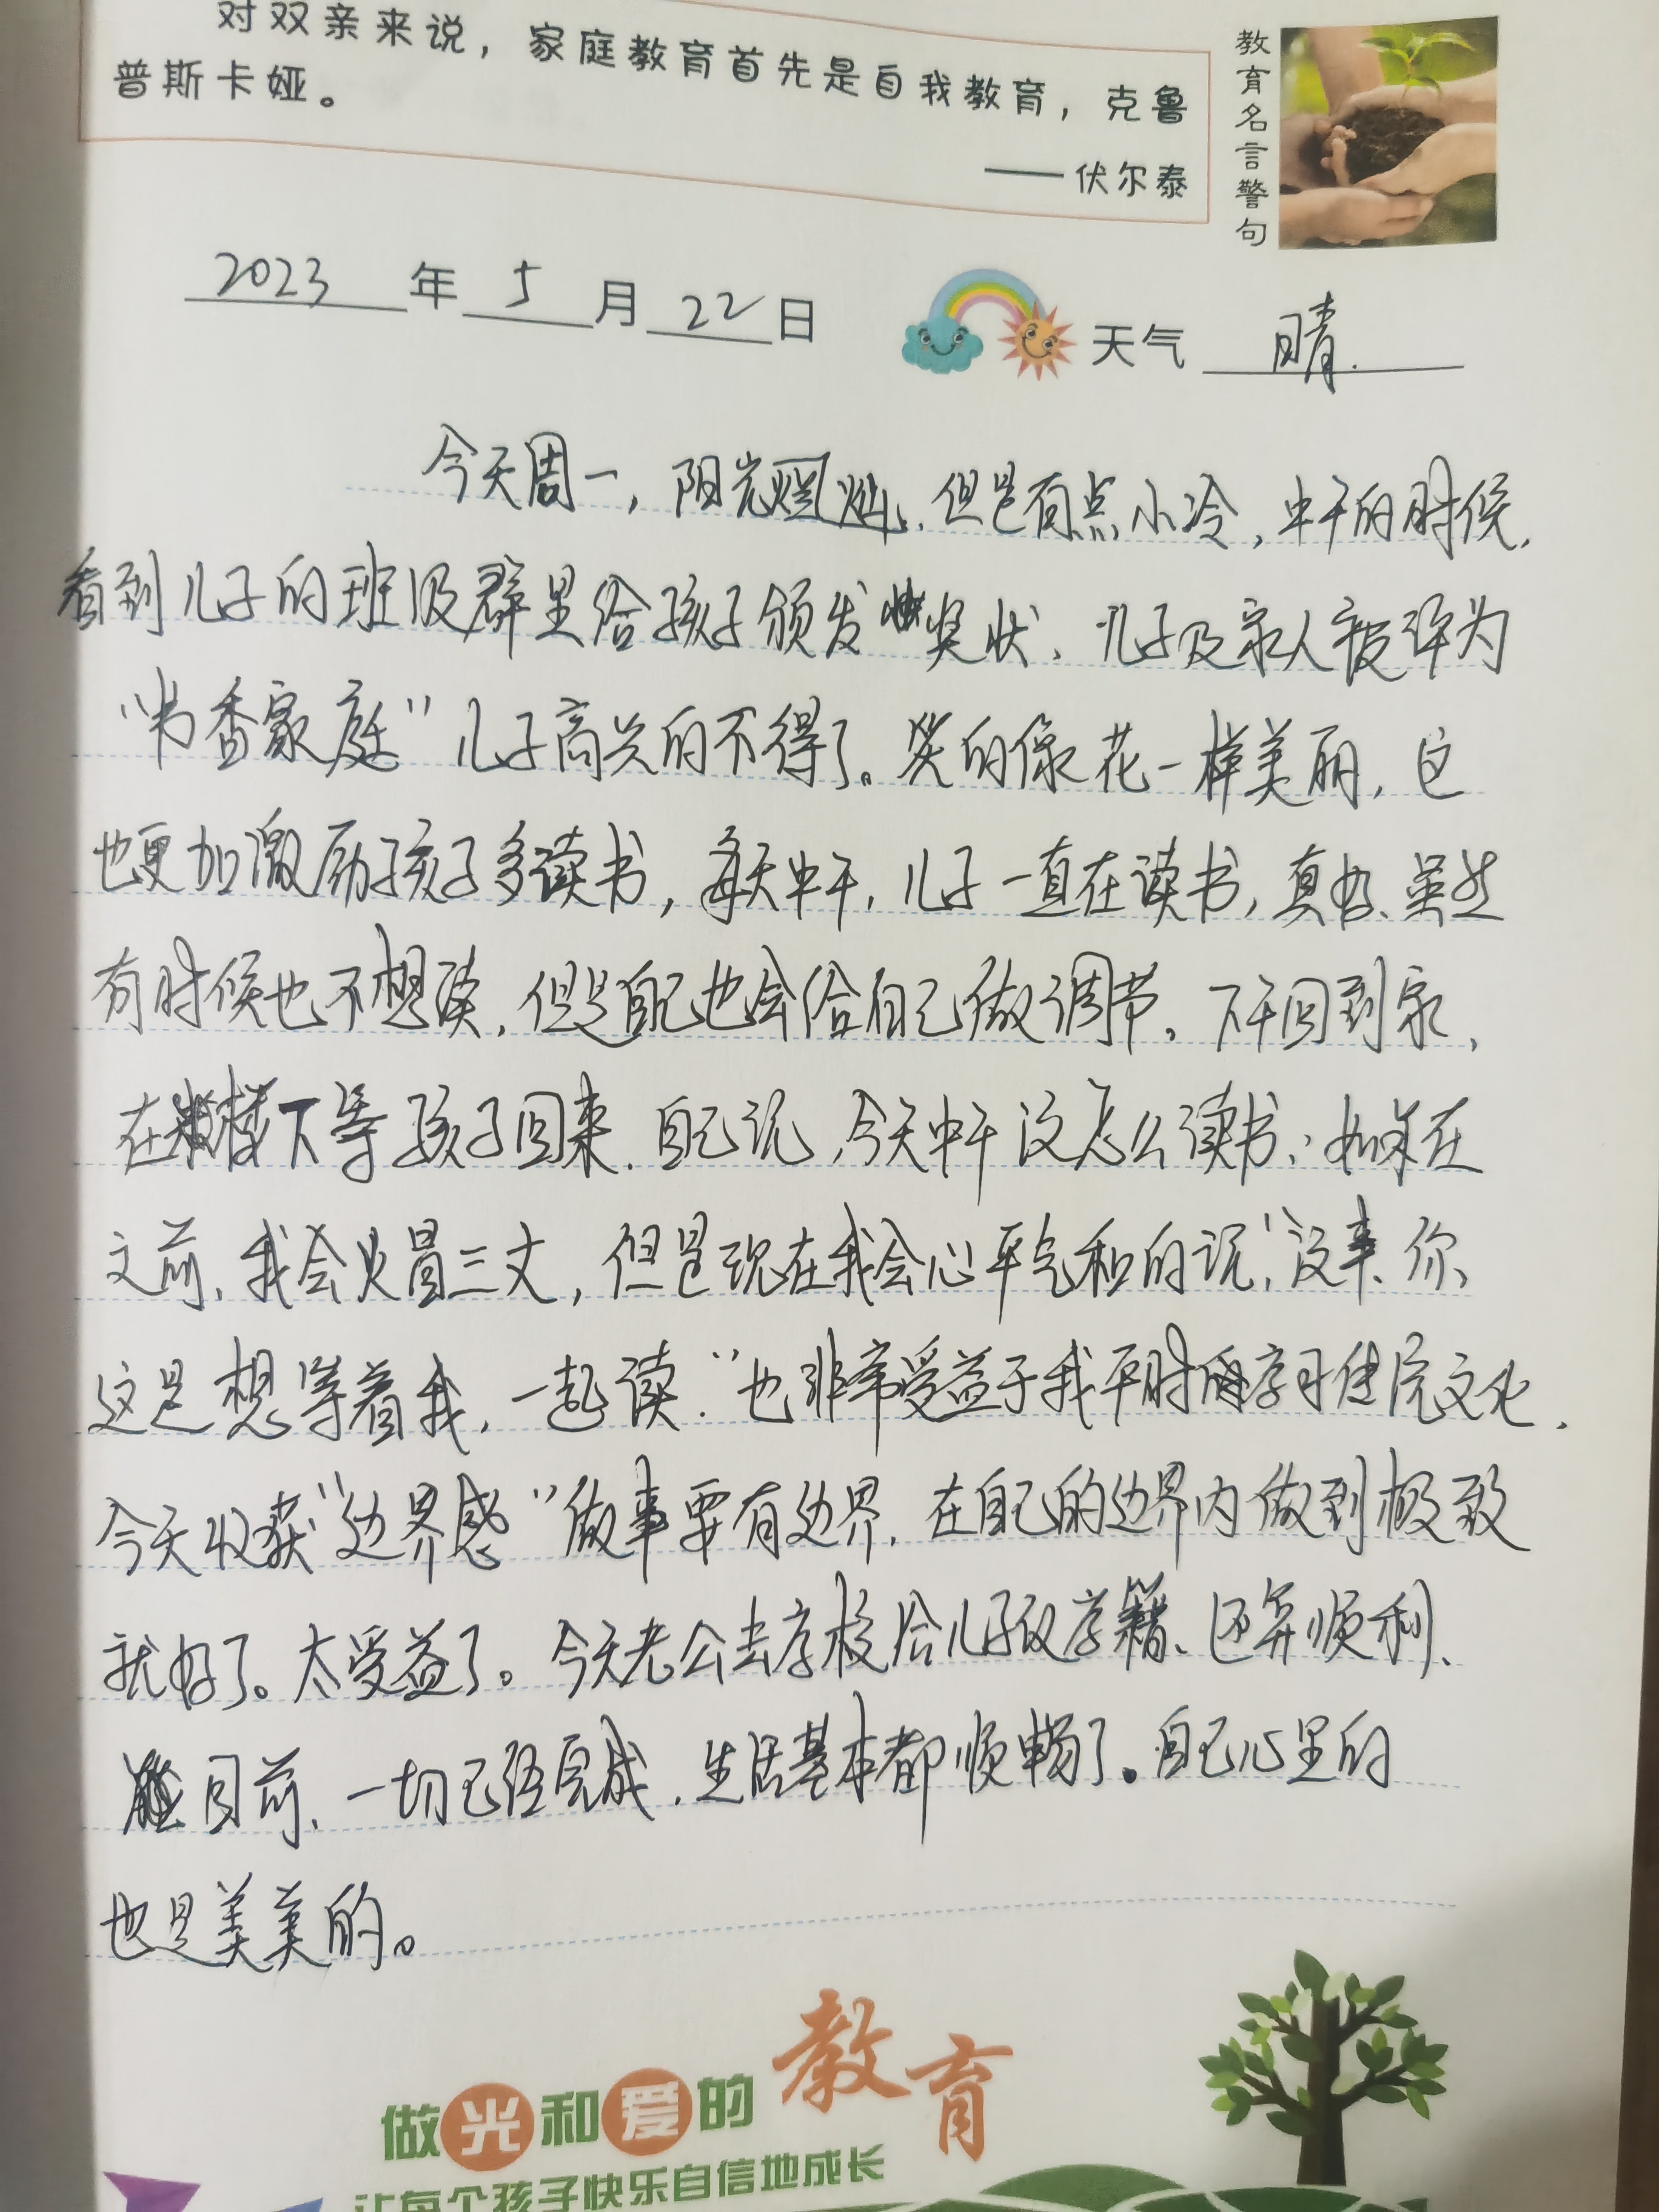 对双亲来说，家庭教育首先是自我教育，克鲁
普斯卡娅。
——伏尔泰
教育名言警句
2023年5月22日
天气 晴.
今天周一，阳光灿，但是有点小冷，中午的时候，
看到儿子的班级群里给孩子颁发奖状、儿子及家人被评为
“书香家庭”儿子高兴的不得了。笑的像花一样美丽，这
也更加激励孩子多读书，每天中午，儿子一直在读书，真好、虽然
有时候也不想读，但是自己也会给自己做调节。下午回到家，
在楼下等孩子回来.自己说，今天中午没怎么读书，如果在
之前，我会火冒三丈，但是现在我会心平气和的说，“没事、你
这是想等着我，一起读.”也非常受益于我平时的学习传统文化，
今天收获“边界感”做事要有边界，在自己的边界内做到极致
就好了。太受益了。今天老公去学校给儿子改学籍、还算顺利、
目前，一切已经完成，生活基本都顺畅了。自己心里的
也是美美的。
做光和爱的教育
让每个孩子快乐自信地成长